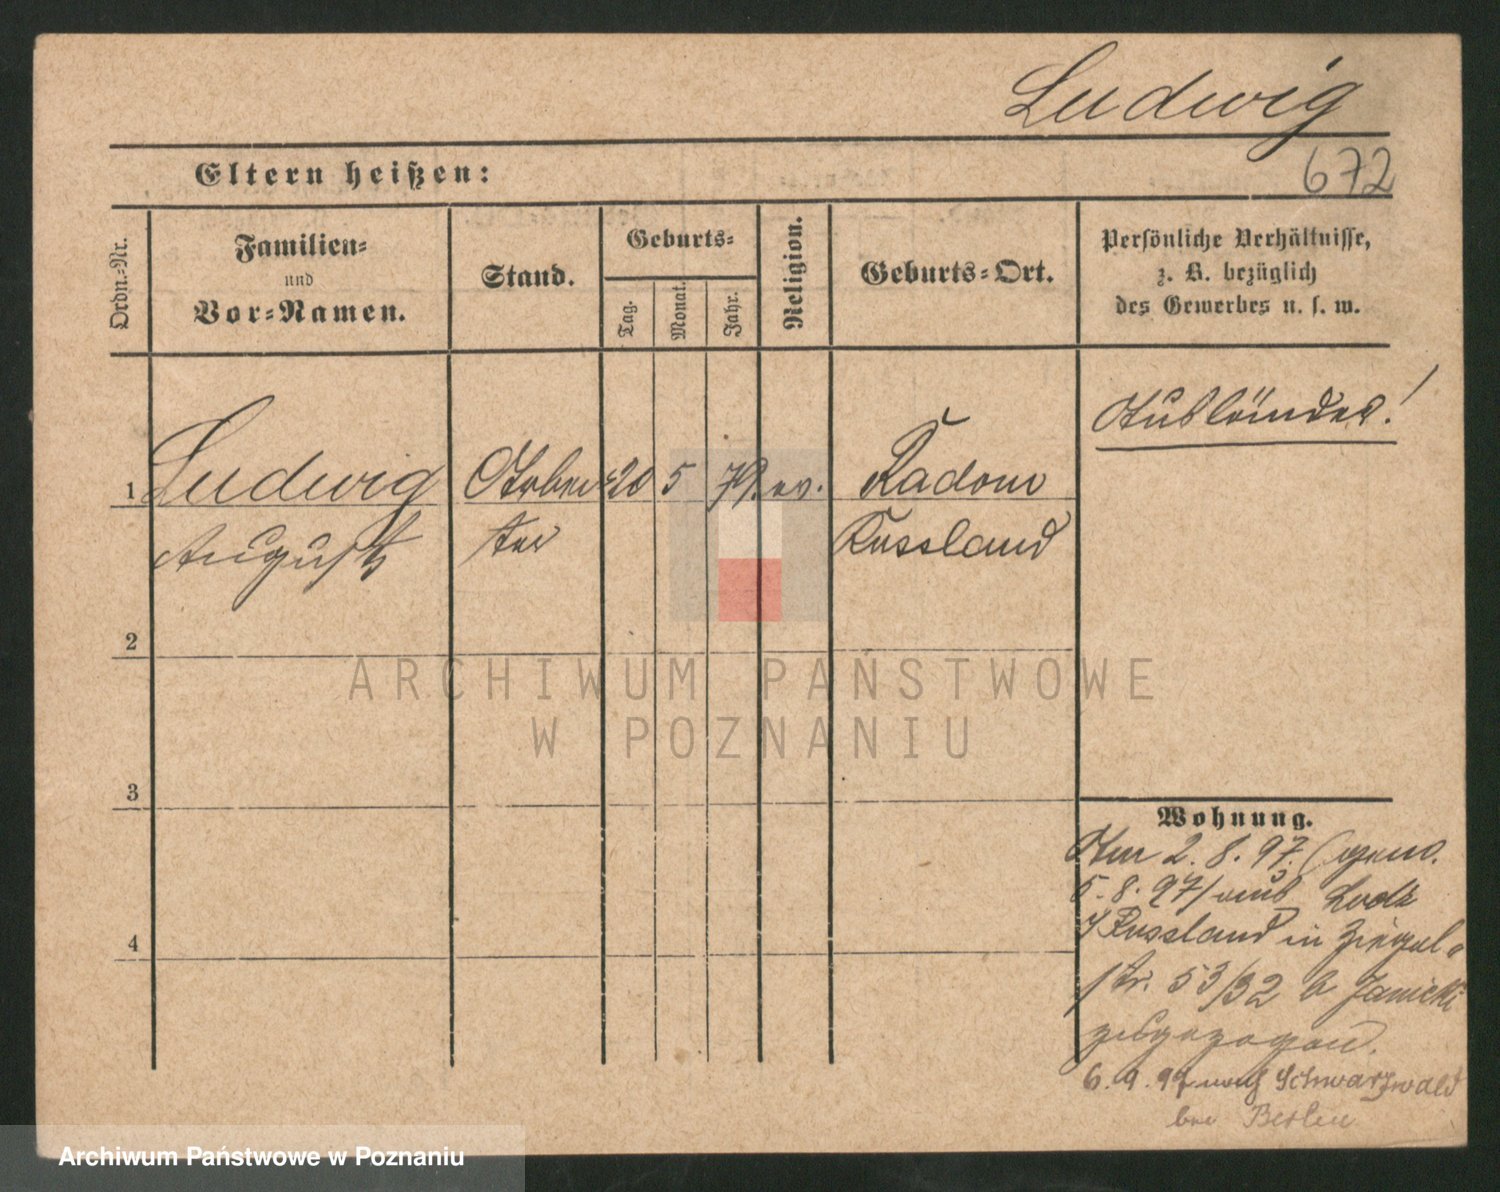 Ludwig
Eltern heißen:
672
Ordn.=Nr.
Familien=
und
Vor=Namen.
Stand.
Geburts=
Tag.
Monat.
Jahr.
Religion.
Geburts=Ort.
Persönliche Verhältnisse,
z. B. bezüglich
des Gewerbes u. s. w.
Ausländer!
1 Ludwig Arbei= 20 5 79. ev. Radom
August ter Russland
2
3
4
ARCHIWUM PAŃSTWOWE
W POZNANIU
Wohnung.
Am 2. 8. 97. (gem.
5. 8. 97) aus Lodz
i/Russland in Ziegel=
str. 53/32 b Janicki
zugezogen.
6. 9. 97 nach Schwarzwald
bei Berlin
Archiwum Państwowe w Poznaniu